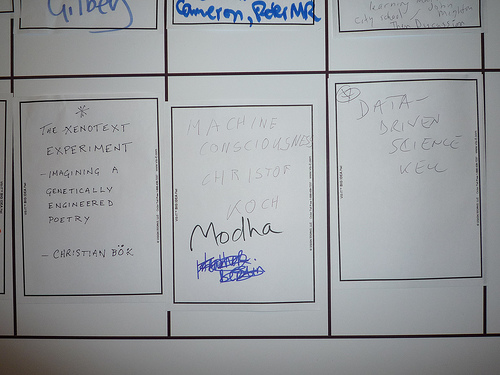 Gilbert
Cameron, Peter MR
learning
John
city school
The Discussion
THE XENOTEXT
EXPERIMENT
- IMAGINING A
GENETICALLY
ENGINEERED
POETRY
- CHRISTIAN BÖK
MACHINE
CONSCIOUSNESS
CHRISTOF
KOCH
Modha
DATA-
DRIVEN
SCIENCE